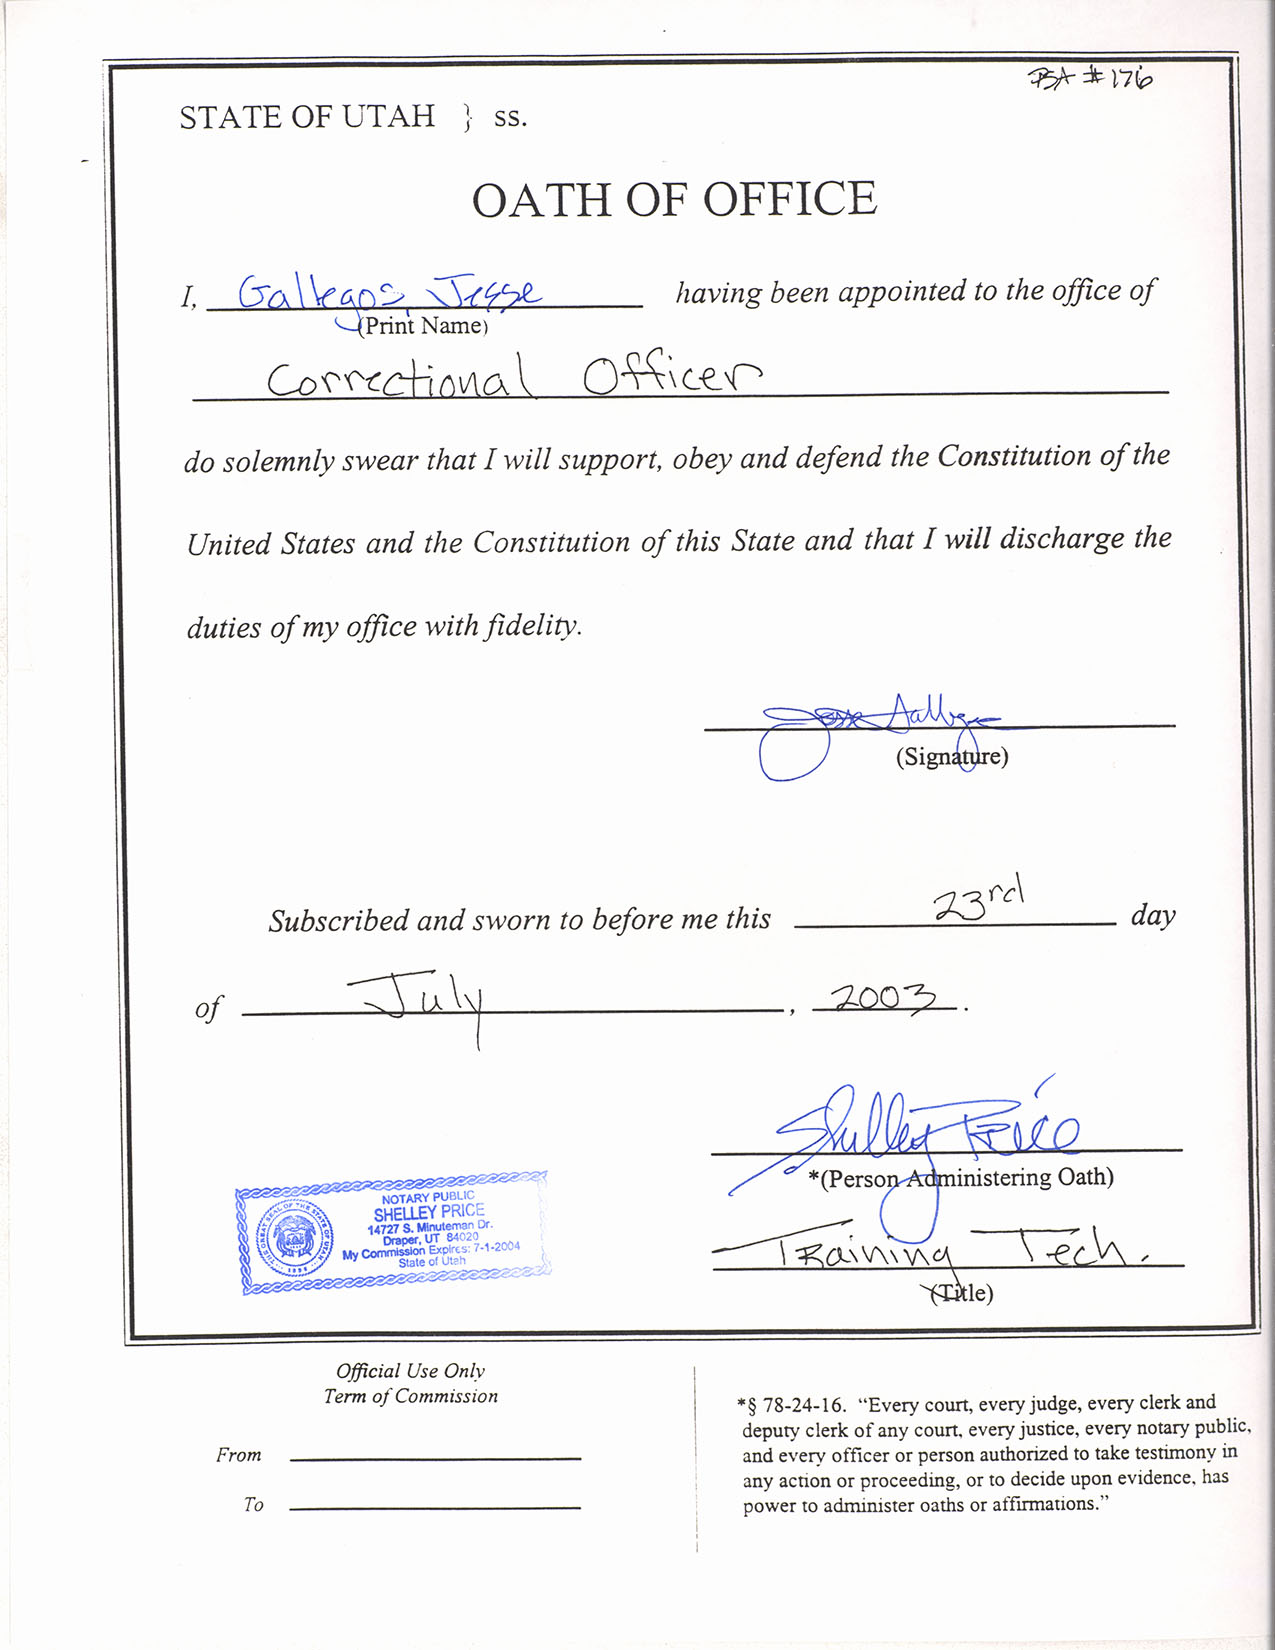 BA #176
STATE OF UTAH } ss.
OATH OF OFFICE
I, Gallegos, Jesse having been appointed to the office of
(Print Name)
Correctional Officer
do solemnly swear that I will support, obey and defend the Constitution of the
United States and the Constitution of this State and that I will discharge the
duties of my office with fidelity.
(Signature)
Subscribed and sworn to before me this 23rd day
of July, 2003.
Shelley Price
*(Person Administering Oath)
Training Tech.
(Title)
THE GREAT SEAL OF THE STATE OF UTAH
1896
NOTARY PUBLIC
SHELLEY PRICE
14727 S. Minuteman Dr.
Draper, UT 84020
My Commission Expires: 7-1-2004
State of Utah
Official Use Only
Term of Commission
From
To
*§ 78-24-16. "Every court, every judge, every clerk and
deputy clerk of any court, every justice, every notary public,
and every officer or person authorized to take testimony in
any action or proceeding, or to decide upon evidence, has
power to administer oaths or affirmations."